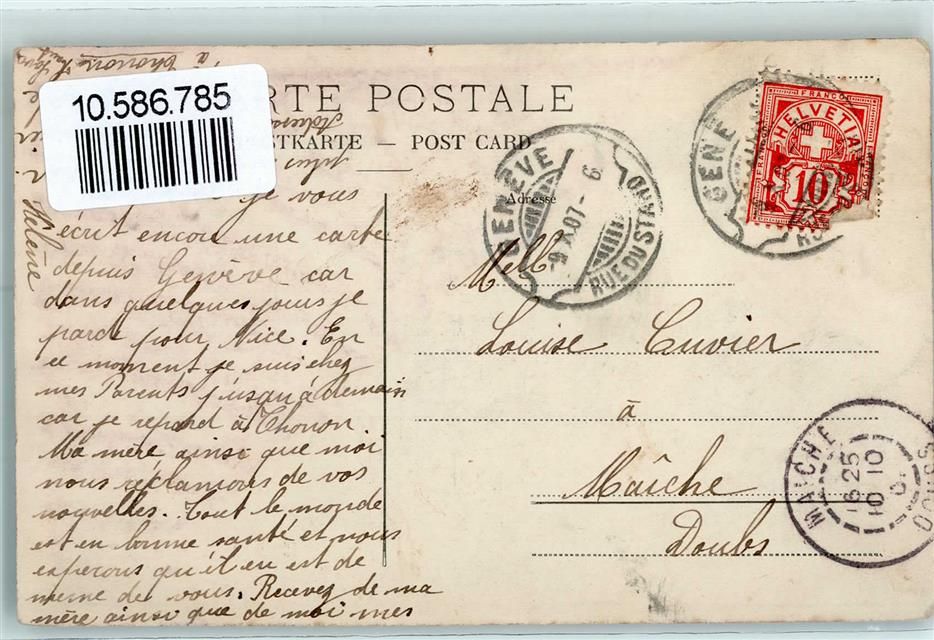 10.586.785
RTE POSTALE
STKARTE — POST CARD
Adresse
FRANCO
HELVETIA
10
GENÈVE
9.X.07-6
RUE DU STAND
GENÈ
Mell
Louise Cuvier
à
Maîche
Doubs
MAICHE
16 25
10 10
DOUBS
je vous
écrit encore une carte
depuis Genève car
dans quelques jours je
pards pour Nice. En
ce moment je suis chez
mes Parents j'usqu'à demain
car je repard à Thonon
Ma mère ainsi que moi
nous réclamons de vos
nouvelles. Tout le monde
est en bonne santé et nous
esperons qu'il en est de
meme de vous. Recevez de ma
mère ainsi que de moi mes
Hélène
à Thonon